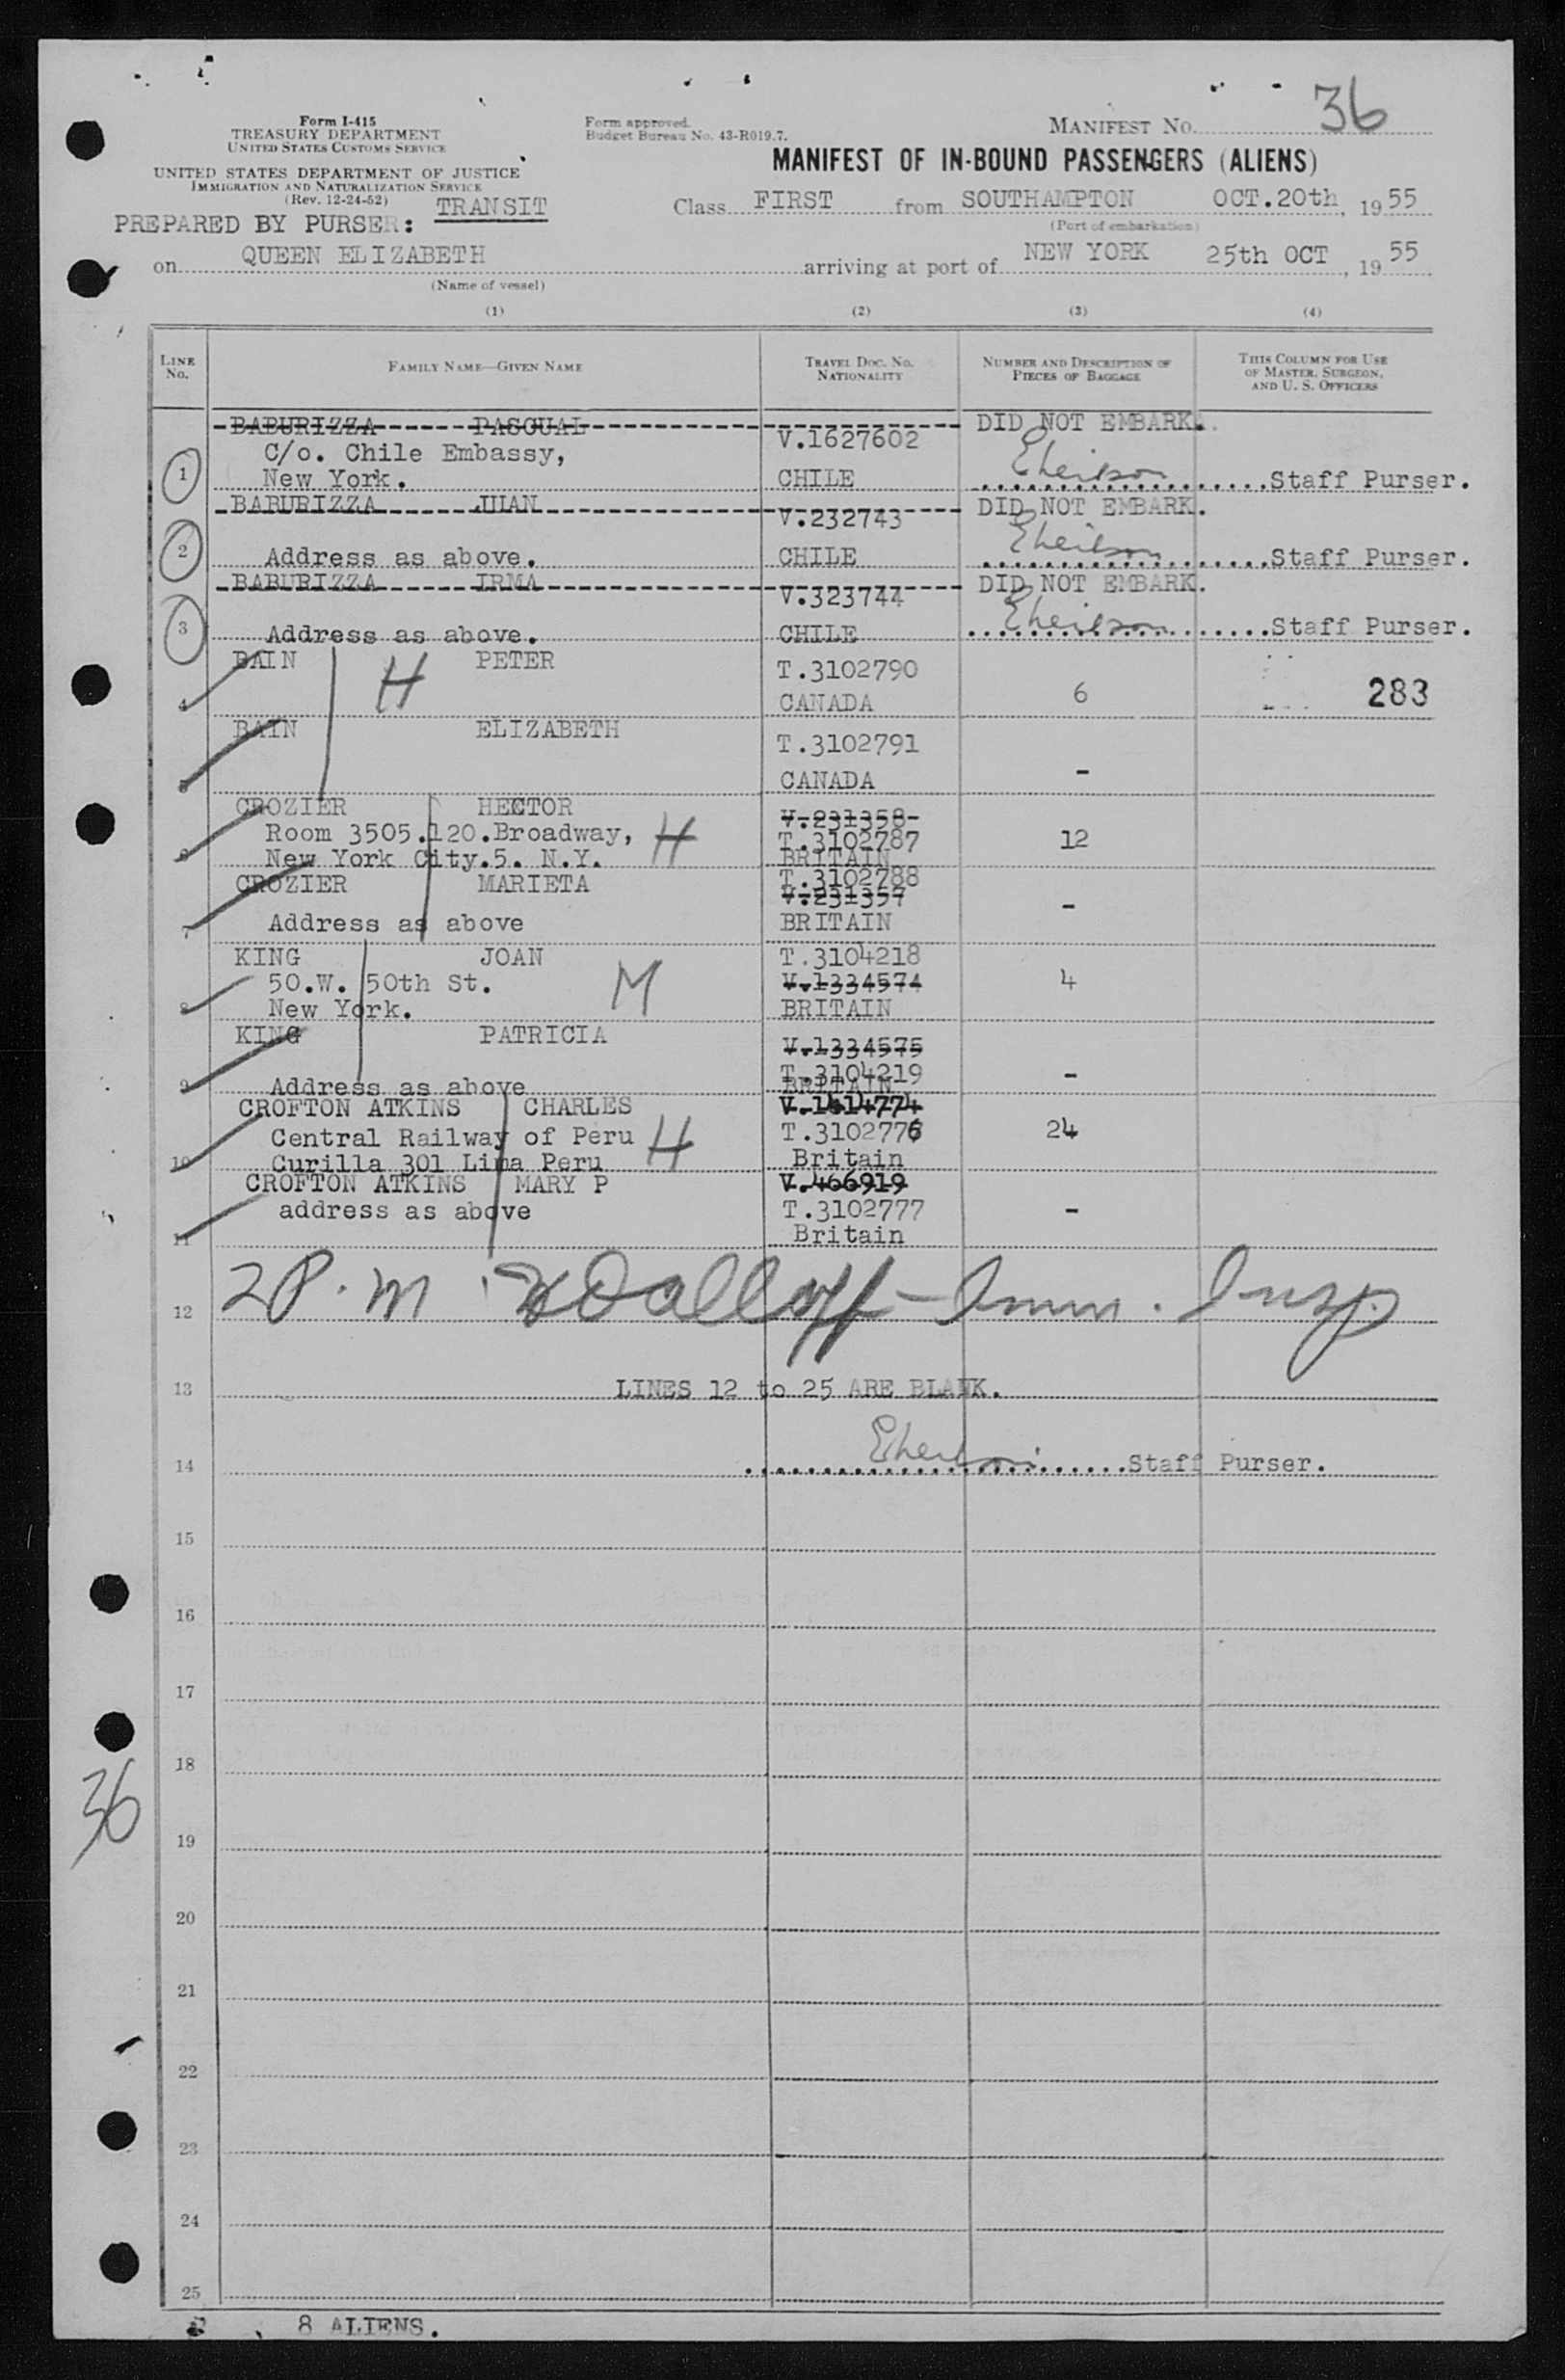 36
Form I-415
TREASURY DEPARTMENT
UNITED STATES CUSTOMS SERVICE
Form approved.
Budget Bureau No. 43-R019.7.
MANIFEST NO.
UNITED STATES DEPARTMENT OF JUSTICE
IMMIGRATION AND NATURALIZATION SERVICE
(Rev. 12-24-52)
MANIFEST OF IN-BOUND PASSENGERS (ALIENS)
PREPARED BY PURSER: TRANSIT
Class FIRST from SOUTHAMPTON OCT.20th, 1955
(Port of embarkation)
on QUEEN ELIZABETH arriving at port of NEW YORK 25th OCT, 1955
(Name of vessel)
(1) (2) (3) (4)
LINE No. FAMILY NAME—GIVEN NAME TRAVEL DOC. NO. NATIONALITY NUMBER AND DESCRIPTION OF PIECES OF BAGGAGE THIS COLUMN FOR USE OF MASTER, SURGEON, AND U. S. OFFICERS
BABURIZZA PASCUAL DID NOT EMBARK.
C/o. Chile Embassy, V.1627602
1 New York. CHILE Staff Purser.
BABURIZZA JUAN DID NOT EMBARK.
V.232743
2 Address as above. CHILE Staff Purser.
BABURIZZA IRMA DID NOT EMBARK.
V.323744
3 Address as above. CHILE Staff Purser.
BAIN H PETER T.3102790
4 CANADA 6 283
BAIN ELIZABETH T.3102791
5 CANADA -
CROZIER HECTOR V.231358
Room 3505.120.Broadway, H T.3102787 12
6 New York City.5. N.Y. BRITAIN
CROZIER MARIETA T.3102788
V.231357
7 Address as above BRITAIN -
KING JOAN T.3104218
50.W. 50th St. M V.1334574 4
8 New York. BRITAIN
KING PATRICIA V.1334575
T.3104219 -
9 Address as above BRITAIN
CROFTON ATKINS CHARLES V.1614774
Central Railway of Peru H T.3102776 24
10 Curilla 301 Lima Peru Britain
CROFTON ATKINS MARY P V.466919
address as above T.3102777 -
11 Britain
12 2P.M - Imm. Insp.
13 LINES 12 to 25 ARE BLANK.
14 Staff Purser.
15
16
17
18
36
19
20
21
22
23
24
25
8 ALIENS.